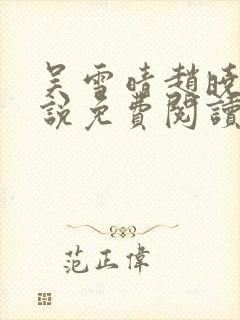 吴雪晴趙曉
說免費閱讀
范正偉